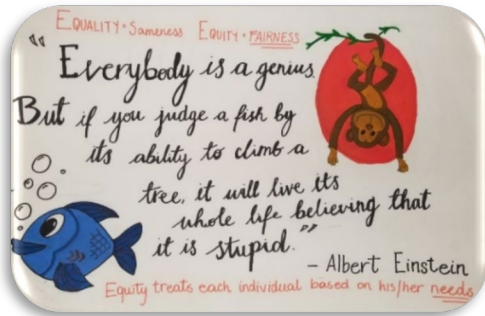 EQUALITY = Sameness EQUITY = FAIRNESS
"Everybody is a genius.
But if you judge a fish by
its ability to climb a
tree, it will live its
whole life believing that
it is stupid."
- Albert Einstein
Equity treats each individual based on his/her needs